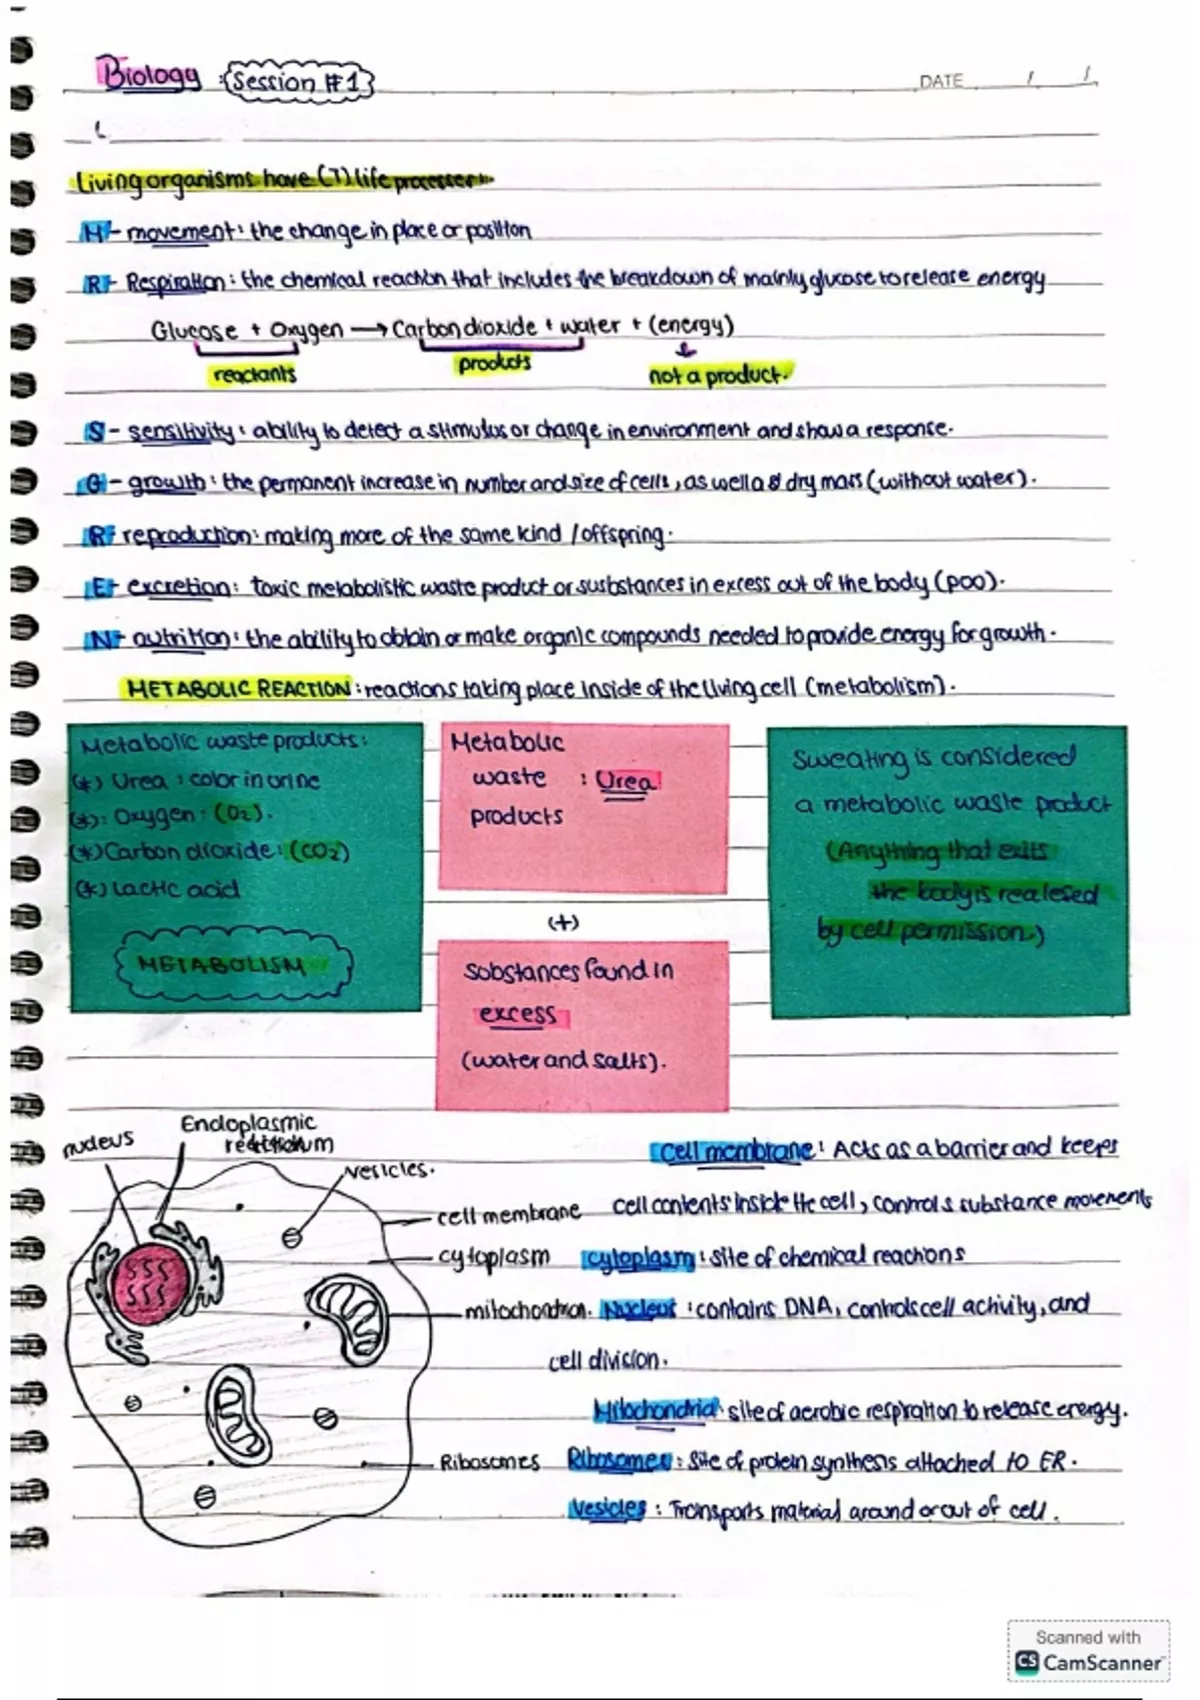 Biology : Session #1
DATE / /
Living organisms have (7) life processes:
M - movement: the change in place or position
R - Respiration: the chemical reaction that includes the breakdown of mainly glucose to release energy
Glucose + Oxygen → Carbon dioxide + water + (energy)
reactants products not a product.
S - sensitivity: ability to detect a stimulus or change in environment and show a response.
G - growth: the permanent increase in number and size of cells, as well as dry mass (without water).
R - reproduction: making more of the same kind / offspring.
E - excretion: toxic metabolistic waste product or susbstances in excess out of the body (poo).
N - nutrition: the ability to obtain or make organic compounds needed to provide energy for growth.
METABOLIC REACTION: reactions taking place inside of the living cell (metabolism).
Metabolic waste products:
(*) Urea : color in urine
(*): Oxygen: (O2).
(*) Carbon dioxide: (CO2)
(*) Lactic acid
METABOLISM
Metabolic
waste : Urea
products
(+)
Substances found in
excess
(water and salts).
Sweating is considered
a metabolic waste product
(Anything that exits
the body is realesed
by cell permission.)
nucleus
Endoplasmic
vesicles.
cell membrane
cytoplasm
mitochondrion.
Ribosomes
Cell membrane: Acts as a barrier and keeps
cell contents inside the cell, controls substance movements
cytoplasm: site of chemical reactions
Nucleus: contains DNA, controls cell activity, and
cell division.
Mitochondria: site of aerobic respiration to release energy.
Ribosomes: Site of protein synthesis attached to ER.
Vesicles: Transports material around or out of cell.
Scanned with
CS CamScanner